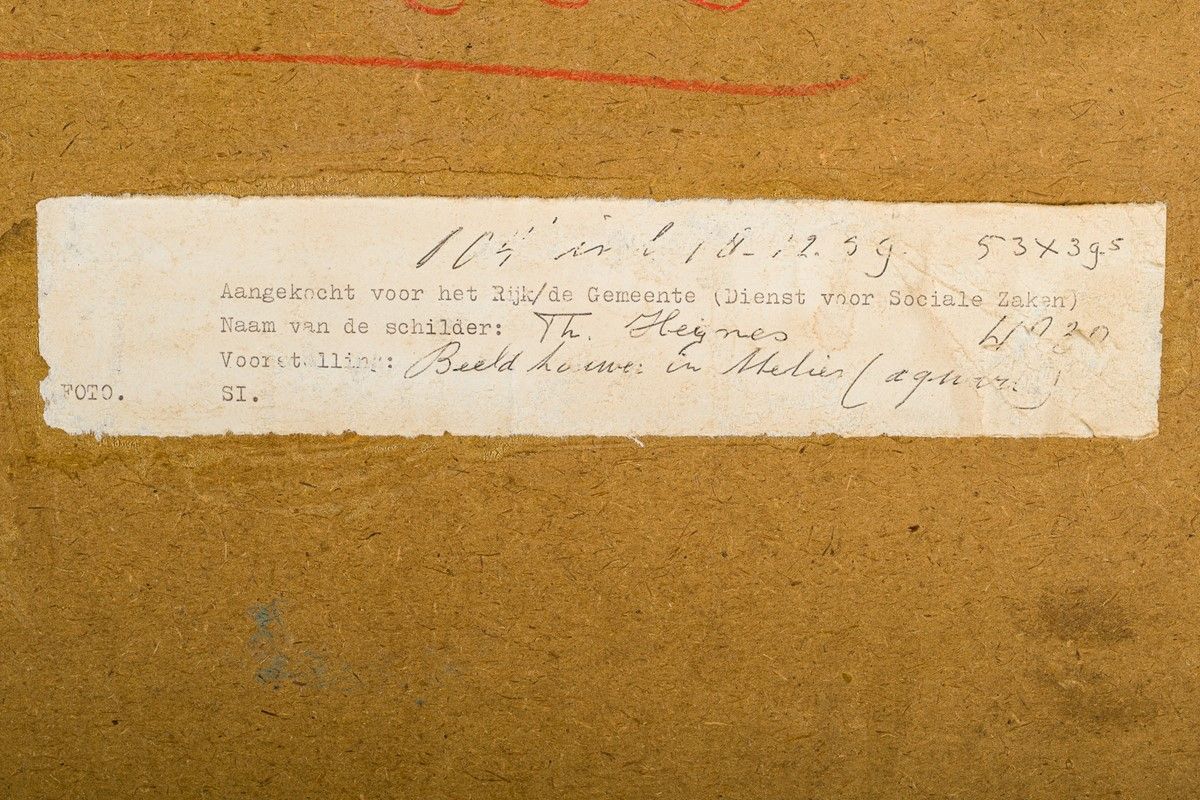 18-12.59. 53x39.5
Aangekocht voor het Rijk/de Gemeente (Dienst voor Sociale Zaken)
Naam van de schilder: Th. Heynes
Voorstelling: Beeldhouwer in Atelier (aquarel)
FOTO. SI.